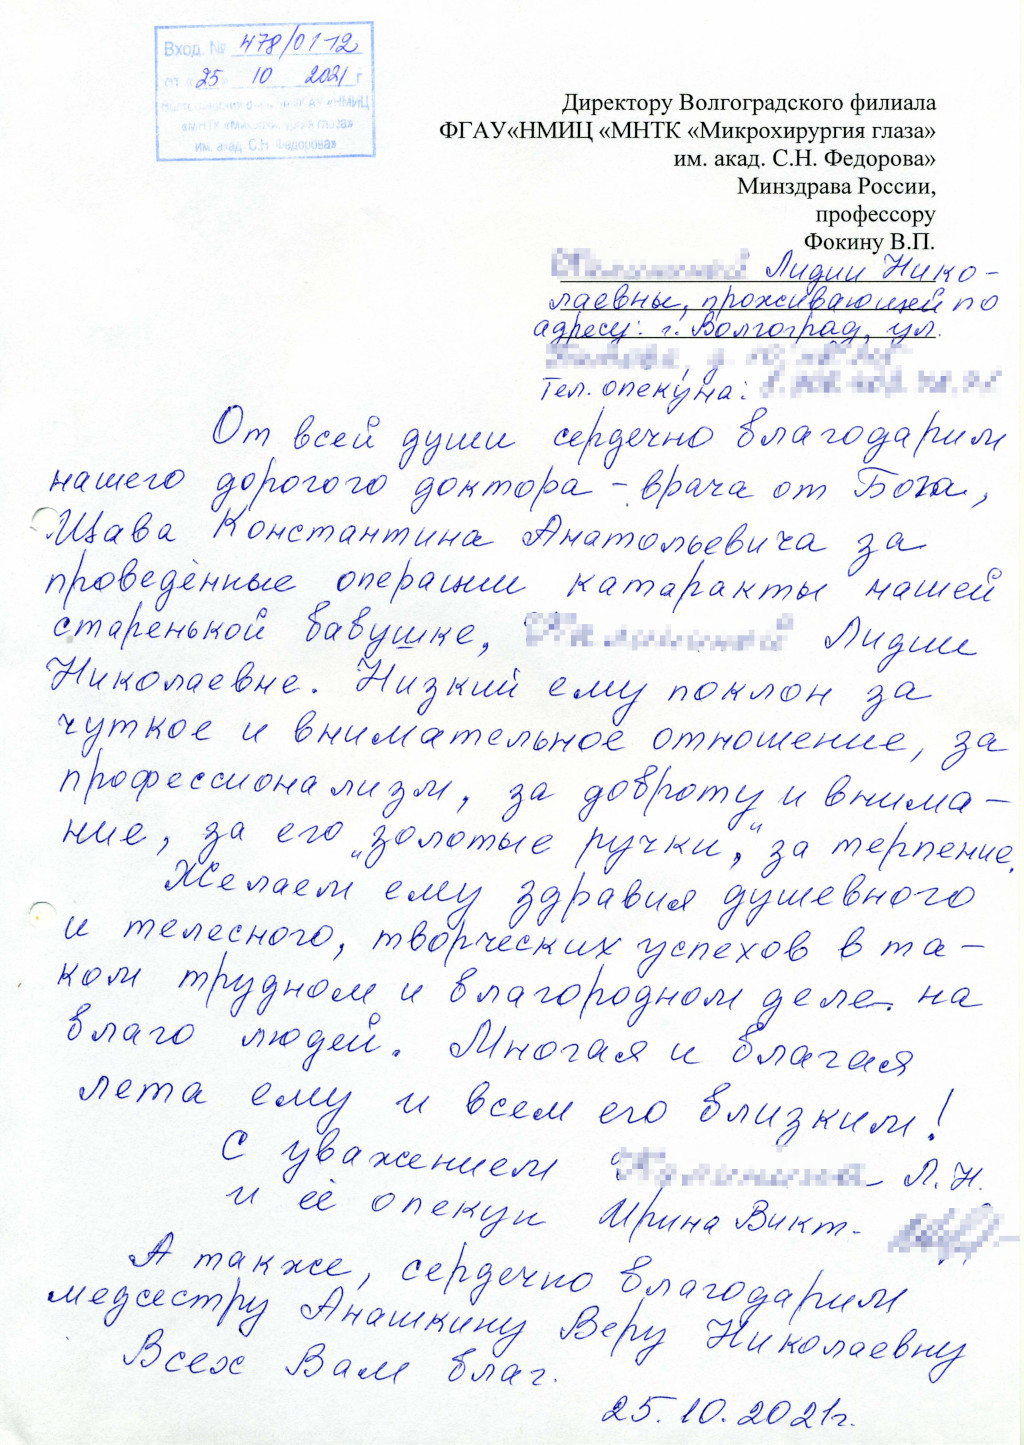 Вход. № 478/01-12
от «25 10 2021 г
Волгоградский филиал ФГАУ «НМИЦ
«МНТК «Микрохирургия глаза»
им. акад. С.Н. Федорова»
Директору Волгоградского филиала
ФГАУ«НМИЦ «МНТК «Микрохирургия глаза»
им. акад. С.Н. Федорова»
Минздрава России,
профессору
Фокину В.П.
Лидии Нико-
лаевны, проживающей по
адресу: г. Волгоград, ул.
Тел. опекуна:
От всей души сердечно благодарим
нашего дорогого доктора - врача от Бога,
Щава Константина Анатольевича за
проведённые операции катаракты нашей
старенькой бабушке, Лидии
Николаевне. Низкий ему поклон за
чуткое и внимательное отношение, за
профессионализм, за доброту и внима-
ние, за его „золотые ручки," за терпение.
Желаем ему здравия душевного
и телесного, творческих успехов в та-
ком трудном и благородном деле на
благо людей. Многая и благая
лета ему и всем его близким!
С уважением Л.Н.
и её опекун Ирина Викт.
А также, сердечно благодарим
медсестру Анашкину Веру Николаевну
Всех Вам благ.
25.10.2021г.